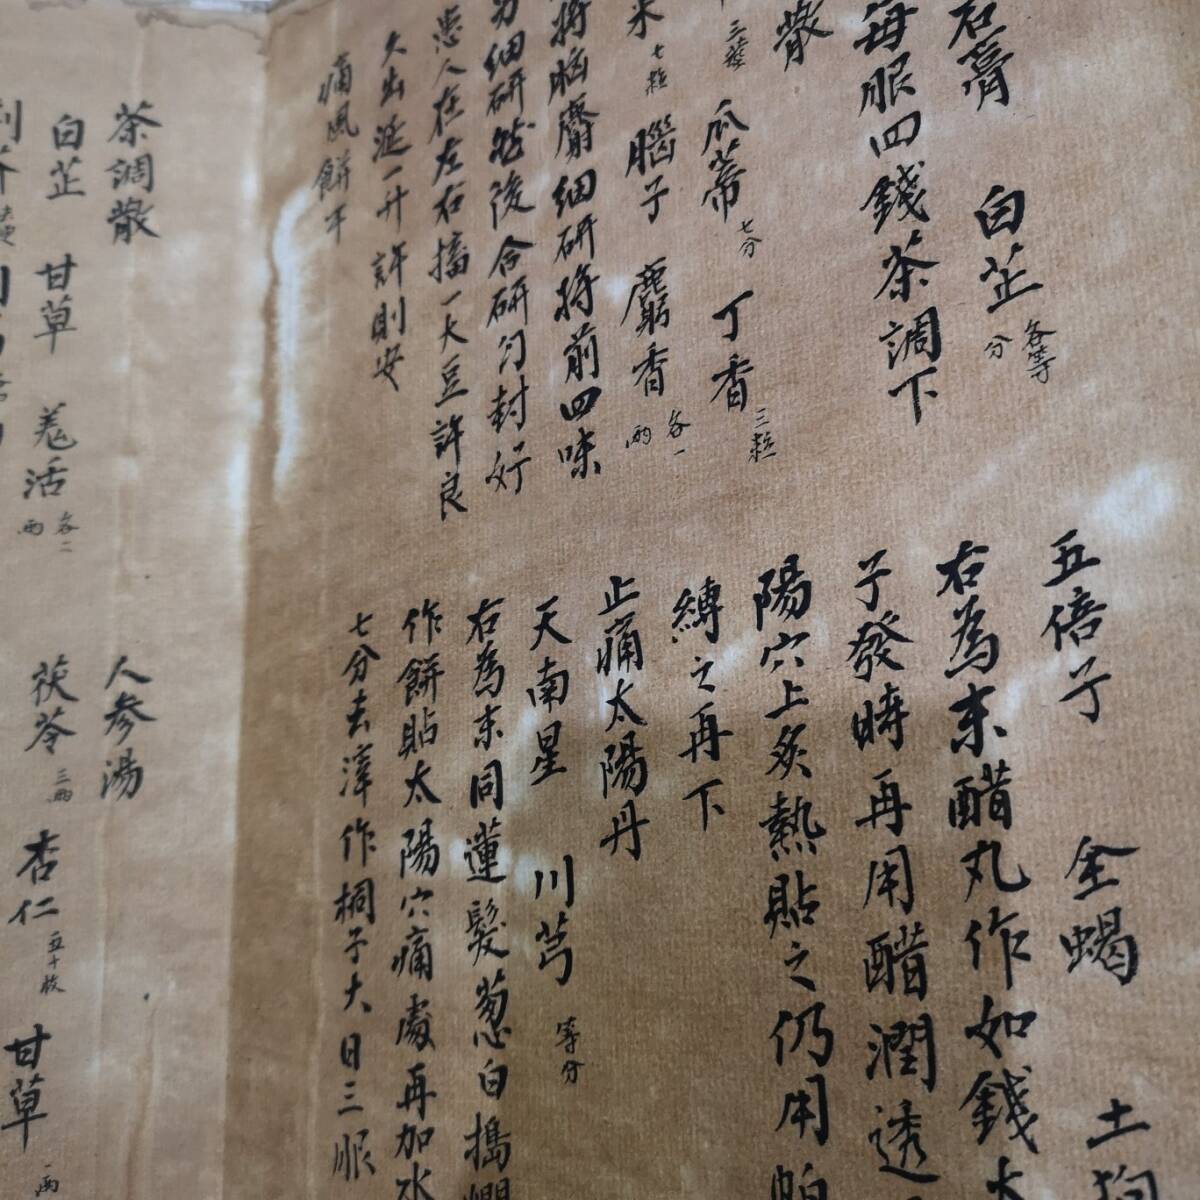 石膏 白芷 各等分
每服四錢茶調下
散
三錢 瓜蒂 七分 丁香 三粒
米 七粒 腦子 麝香 各一兩
將腦麝細研將前四味
另細研然後合研勻封好
患人在左右搐一大豆許良
久出涎一升許則安
痛風餅子
五倍子 全蝎 土狗
右為末醋丸作如錢大
子發時再用醋潤透
陽穴上炙熱貼之仍用帕
縛之再下
止痛太陽丹
天南星 川芎 等分
右為末同蓮鬚葱白搗爛
作餅貼太陽穴痛處再加水
七分去滓作桐子大日三服
茶調散
白芷 甘草 羗活 各二兩
荆芥
人參湯
茯苓 三兩 杏仁 五十枚 甘草 一兩